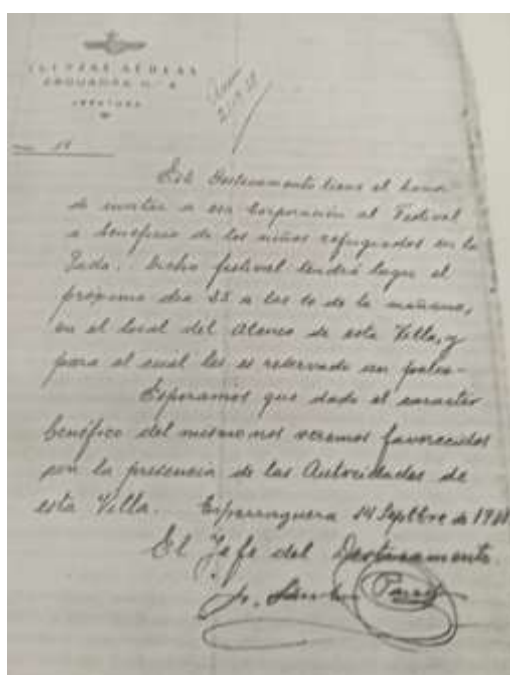 FUERZAS AÉREAS
ESCUADRA N.º
JEFATURA
Este Destacamento tiene el honor
de invitar a esa Corporación al Festival
a beneficio de los niños refugiados en la
Dicho festival tendrá lugar el
próximo dia 25 a las 10 de la mañana,
en el local del Ateneo de esta Villa, y
para el cual les es reservado un palco.-
Esperamos que dado el caracter
benéfico del mismo nos veremos favorecidos
con la presencia de las Autoridades de
esta Villa. Esparraguera 14 Septbre de 1938
El Jefe del Destacamento.